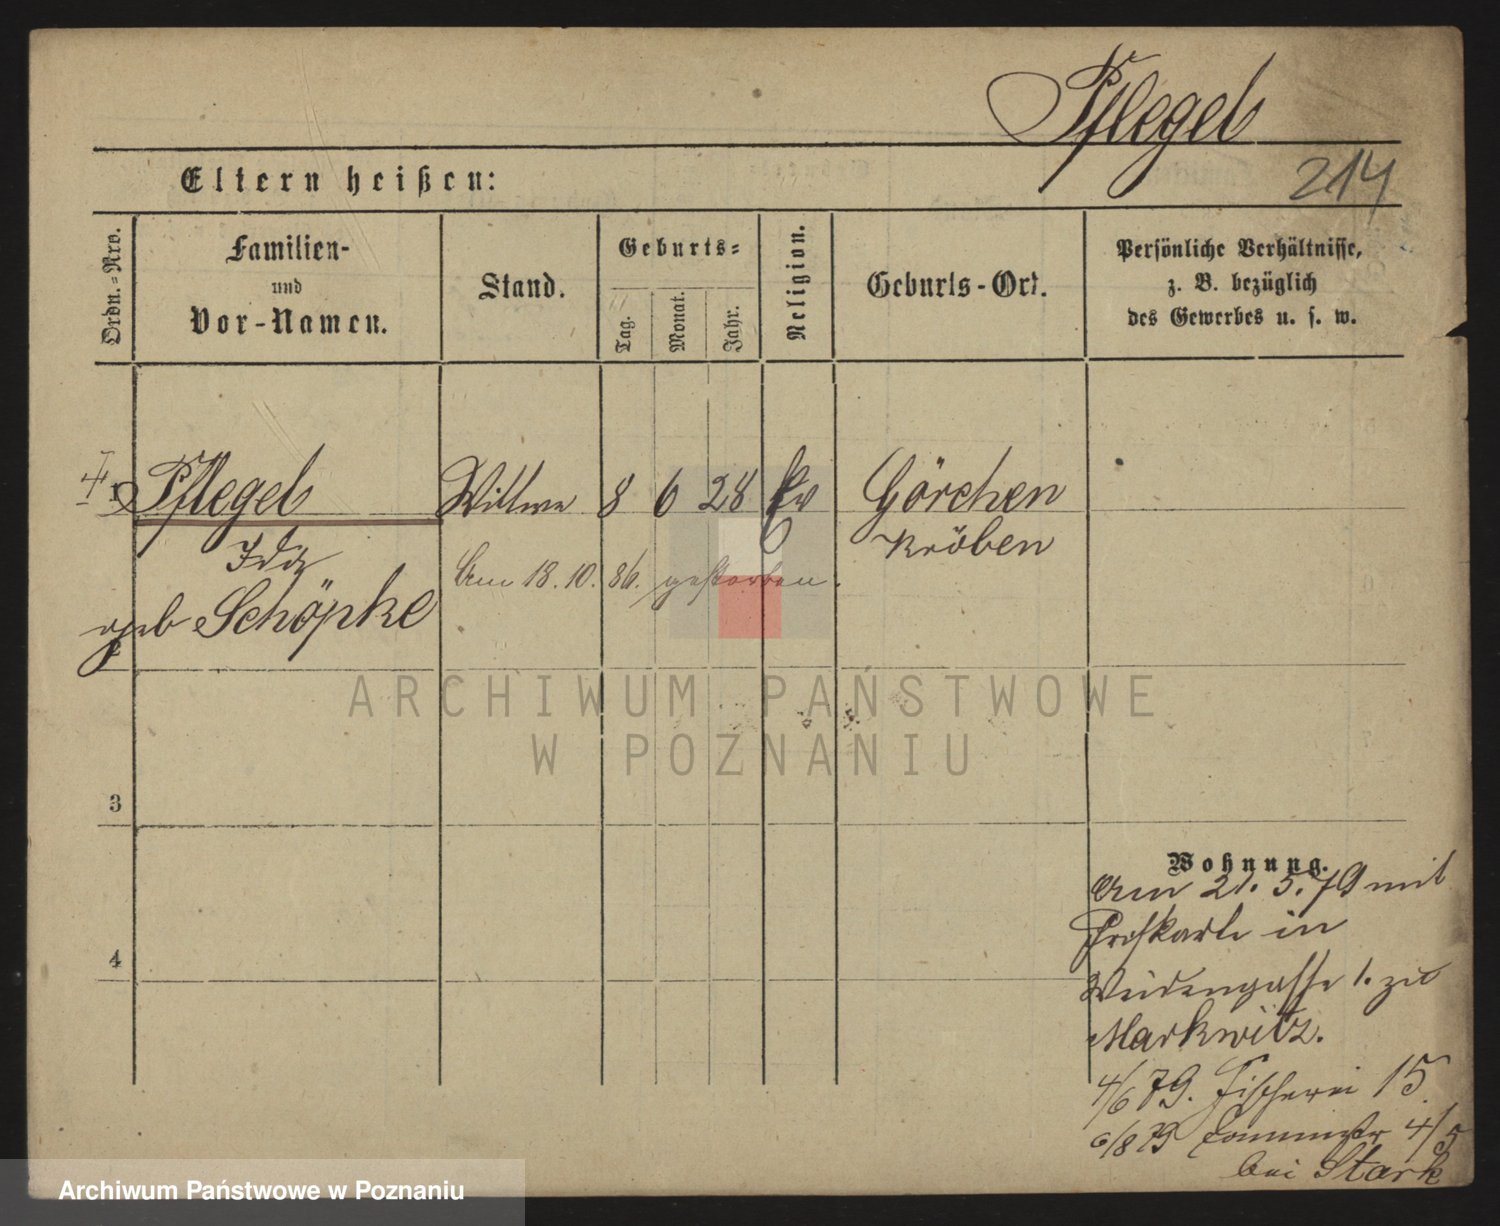 Pflegel
214
Eltern heißen:
Ordn.-Nro.
Familien-
und
Vor-Namen.
Stand.
Geburts-
Tag.
Monat.
Jahr.
Religion.
Geburts-Ort.
Persönliche Verhältnisse,
z. B. bezüglich
des Gewerbes u. s. w.
1 Pflegel Wittwe 8 6 28 Ev Görchen
Kröben
Ida
Am 18. 10. 86. gestorben.
geb Schöpke
2
ARCHIWUM PAŃSTWOWE
W POZNANIU
3
Wohnung.
Am 21. 5. 79 mit
in
4
Weidengasse 1. zu
Markwitz.
4/6 79. Fischerei 15
6/8 79 4/5
bei Stark
Archiwum Państwowe w Poznaniu